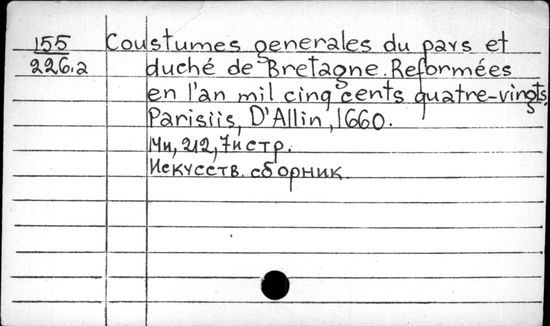 155 Coustumes generales du pays et
226.2 duché de Bretagne. Reformées
en l'an mil cinq cents quatre-vingts,
Parisiis, D'Allin, 1660.
14н, 212, 7н стр.
Искусств. сборник.